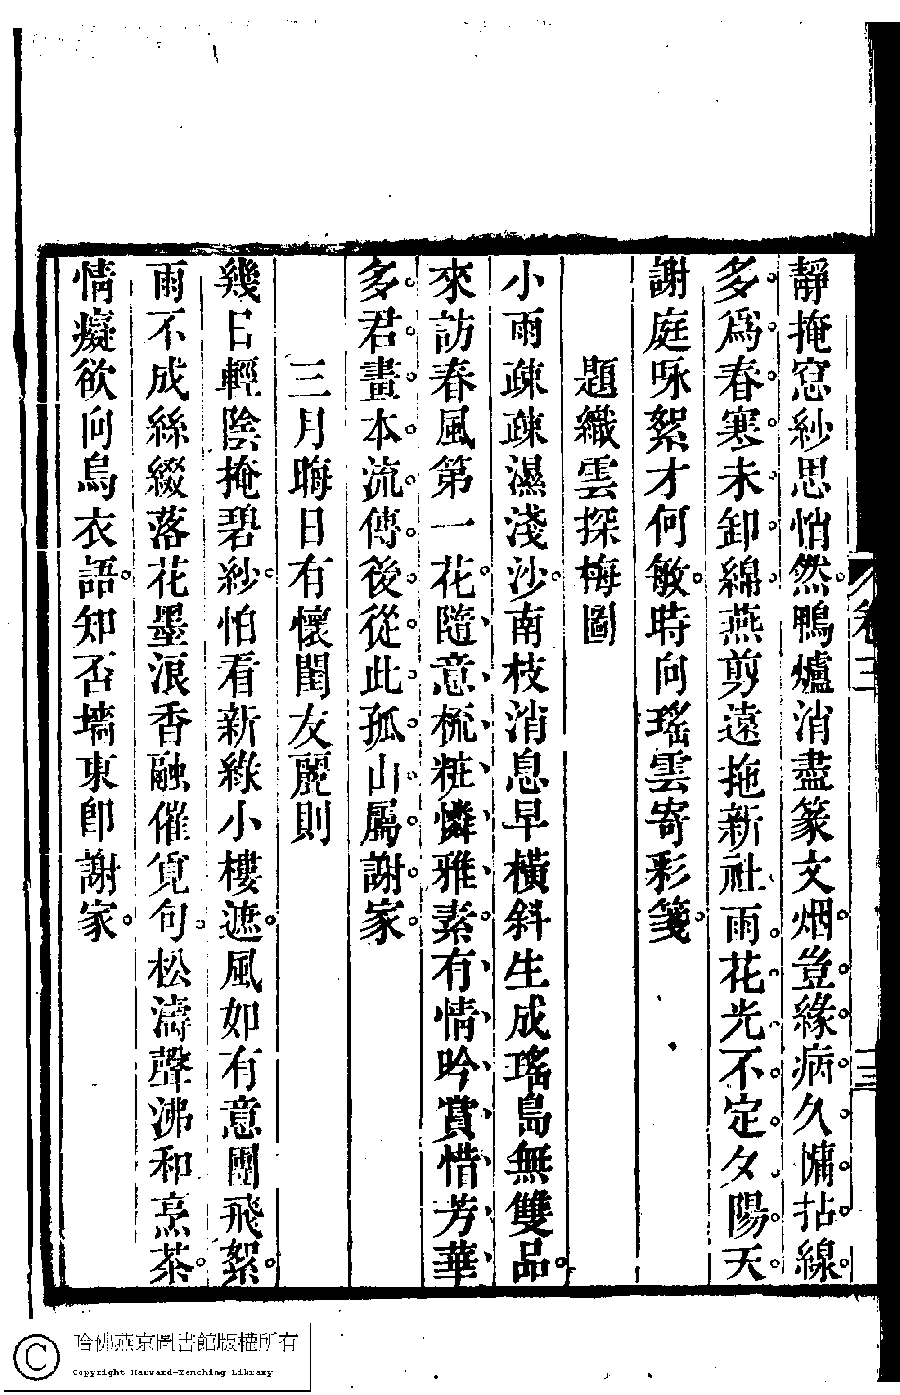 靜掩窓紗思悄然。鴨爐消盡篆文烟。豈緣病久慵拈線。
多爲春寒未卸綿。燕剪遠拖新社雨。花光不定夕陽天。
謝庭咏絮才何敏。時向瑤雲寄彩箋。
題織雲探梅圖
小雨疎疎濕淺沙。南枝消息早橫斜生成瑤島無雙品。
來訪春風第一花。隨意梳粧憐雅素。有情吟賞惜芳華
多君畫本流傳後從此孤山屬謝家。
三月晦日有懷閨友麗則
幾日輕陰掩碧紗。怕看新綠小樓遮。風如有意團飛絮。
雨不成絲綴落花墨浪香融催覓句。松濤聲沸和烹茶。
情癡欲向烏衣語。知否墻東卽謝家。
卷三
三
哈佛燕京圖書館版權所有
Copyright Harvard-Yenching Library